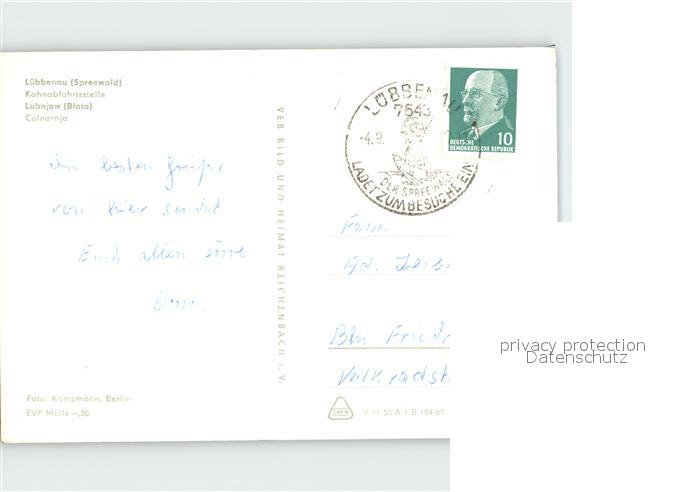 Lübbenau (Spreewald)
Kahnabfahrtsstelle
Lubnjow (Błota)
Colnarnja
besten Grüße
von hier sendet
Euch allen eure
VEB BILD UND HEIMAT REICHENBACH i. V.
LÜBBENAU
7543
-4.9.
DER SPREEWALD
LADET ZUM BESUCHE EIN
10
DEUTSCHE
DEMOKRATISCHE REPUBLIK
Fam.
Bln Friedr
Foto: Kampmann, Berlin
EVP MDN -,20
V 11 50 A 1 B 184/67
privacy protection
Datenschutz